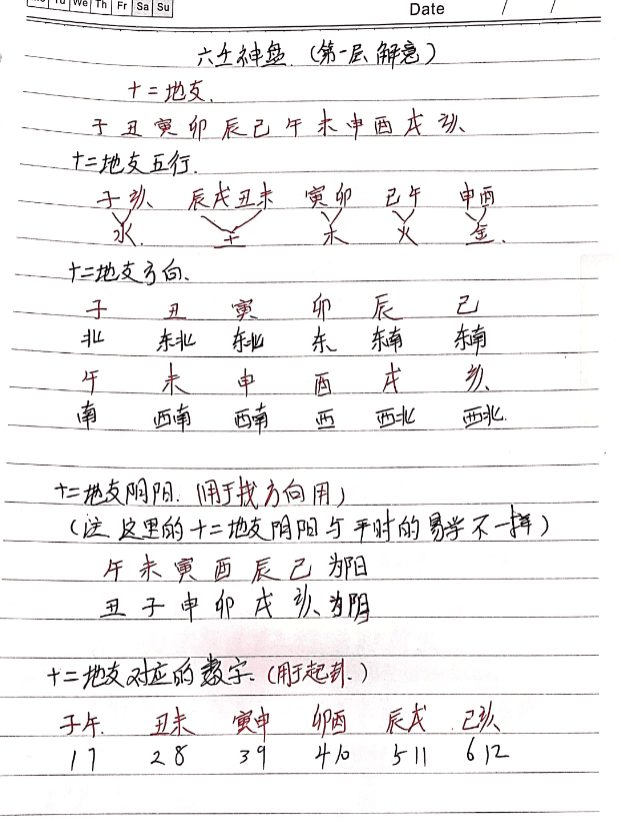 Mo Tu We Th Fr Sa Su
Date / /
六壬神盘.（第一层解意）
十二地支.
子丑寅卯辰巳午未申酉戌亥、
十二地支五行.
子亥、 辰戌丑未 寅卯 巳午 申酉
水. 土 木 火 金.
十二地支方向、
子 丑 寅 卯 辰 巳
北 东北 东北 东 东南 东南
午 未 申 酉 戌 亥、
南 西南 西南 西 西北 西北.
十二地支阴阳.（用于找方向用）
（注 这里的十二地支阴阳与平时的易学不一样）
午未寅酉辰巳为阳
丑子申卯戌亥、为阴
十二地支对应的数字.（用于起卦.）
子午. 丑未 寅申 卯酉 辰戌 巳亥、
1 7 2 8 3 9 4 10 5 11 6 12